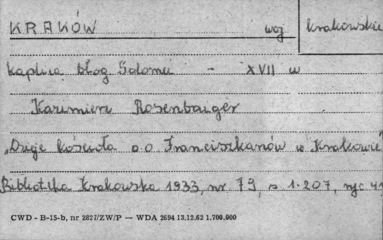 KRAKÓW woj krakowskie
kaplica błog Salomei - XVII w
Kazimierz Rosenbaiger
"Dzieje kościoła o.o Franciszkanów w Krakowie"
Biblioteka Krakowska 1933, nr 79, s 1-207, ryc 41
CWD - B-15-b, nr 2827/ZW/P — WDA 2694 13.12.62 1.700.000